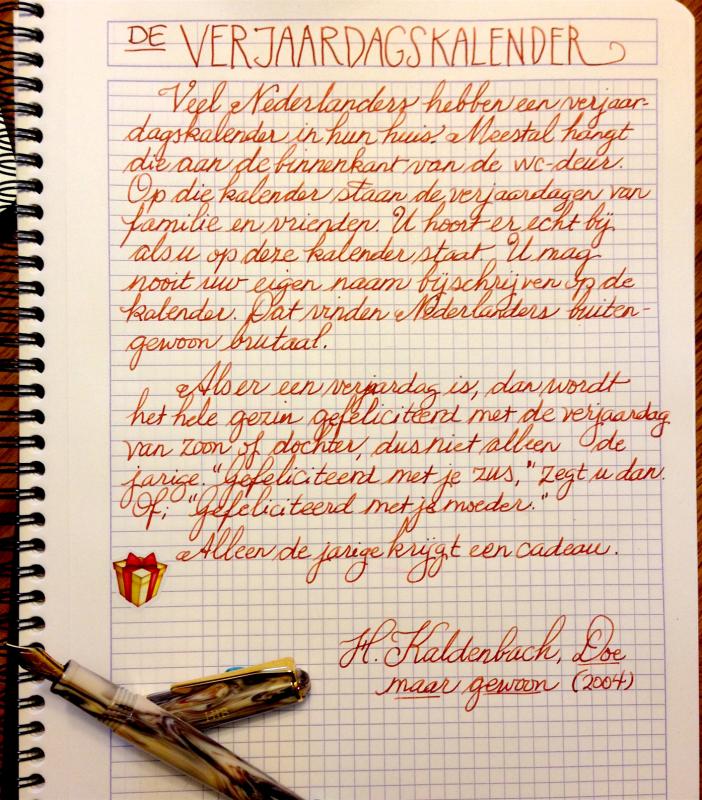 DE VERJAARDAGSKALENDER
Veel Nederlanders hebben een verjaar-
dagskalender in hun huis. Meestal hangt
die aan de binnenkant van de wc-deur.
Op die kalender staan de verjaardagen van
familie en vrienden. U hoort er echt bij
als u op deze kalender staat. U mag
nooit uw eigen naam bijschrijven op de
kalender. Dat vinden Nederlanders buiten-
gewoon brutaal.
Als er een verjaardag is, dan wordt
het hele gezin gefeliciteerd met de verjaardag
van zoon of dochter, dus niet alleen de
jarige. "Gefeliciteerd met je zus," zegt u dan.
Of; "Gefeliciteerd met je moeder."
Alleen de jarige krijgt een cadeau.
H. Kaldenbach, Doe
maar gewoon (2004)